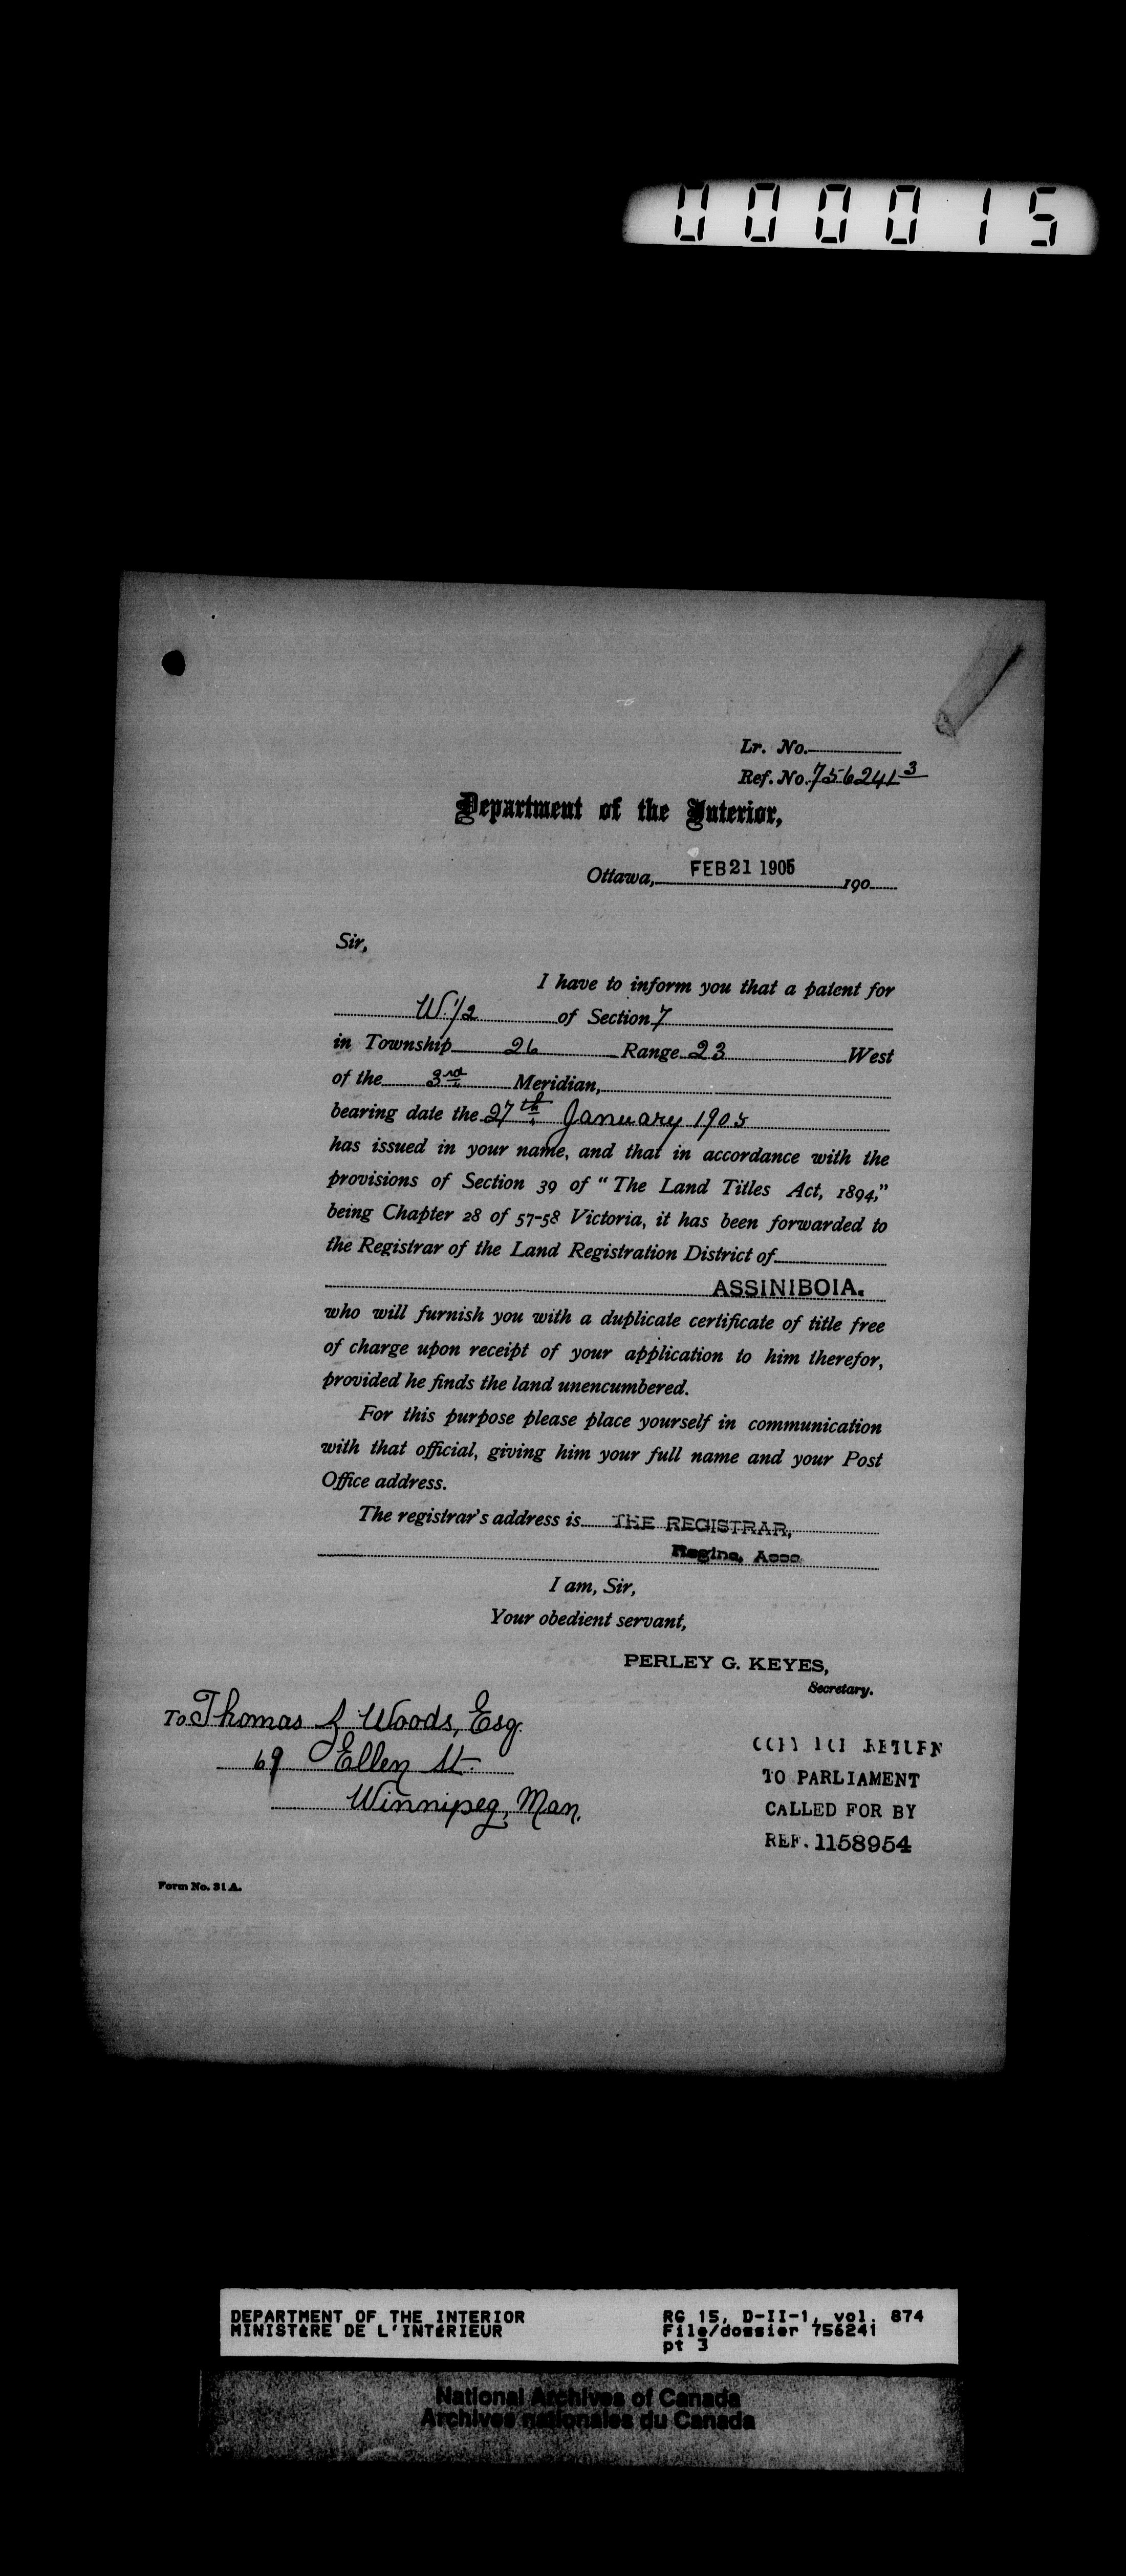 000015
Lr. No.
Ref. No. 756241 3
Department of the Interior,
Ottawa, FEB 21 1905 190
Sir,
I have to inform you that a patent for
W. 1/2 of Section 7
in Township 26 Range 23 West
of the 3rd Meridian,
bearing date the 27th January 1905
has issued in your name, and that in accordance with the
provisions of Section 39 of "The Land Titles Act, 1894,"
being Chapter 28 of 57-58 Victoria, it has been forwarded to
the Registrar of the Land Registration District of
ASSINIBOIA.
who will furnish you with a duplicate certificate of title free
of charge upon receipt of your application to him therefor,
provided he finds the land unencumbered.
For this purpose please place yourself in communication
with that official, giving him your full name and your Post
Office address.
The registrar's address is THE REGISTRAR,
Regina, Assa
I am, Sir,
Your obedient servant,
PERLEY G. KEYES,
Secretary.
To Thomas Woods, Esq.
69 Ellen St.
Winnipeg, Man.
COPY RETURN
TO PARLIAMENT
CALLED FOR BY
REF. 1158954
Form No. 31 A.
DEPARTMENT OF THE INTERIOR
MINISTÈRE DE L'INTÉRIEUR
RG 15, D-II-1, vol. 874
File/dossier 756241
pt 3
National Archives of Canada
Archives nationales du Canada